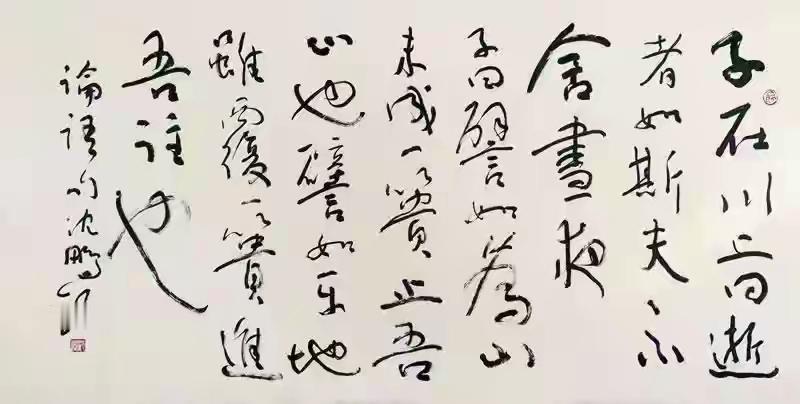 子在川上曰逝
者如斯夫不
舍晝夜
子曰譬如為山
未成一簣止吾
止也譬如平地
雖覆一簣進
吾往也
論語句沈鵬